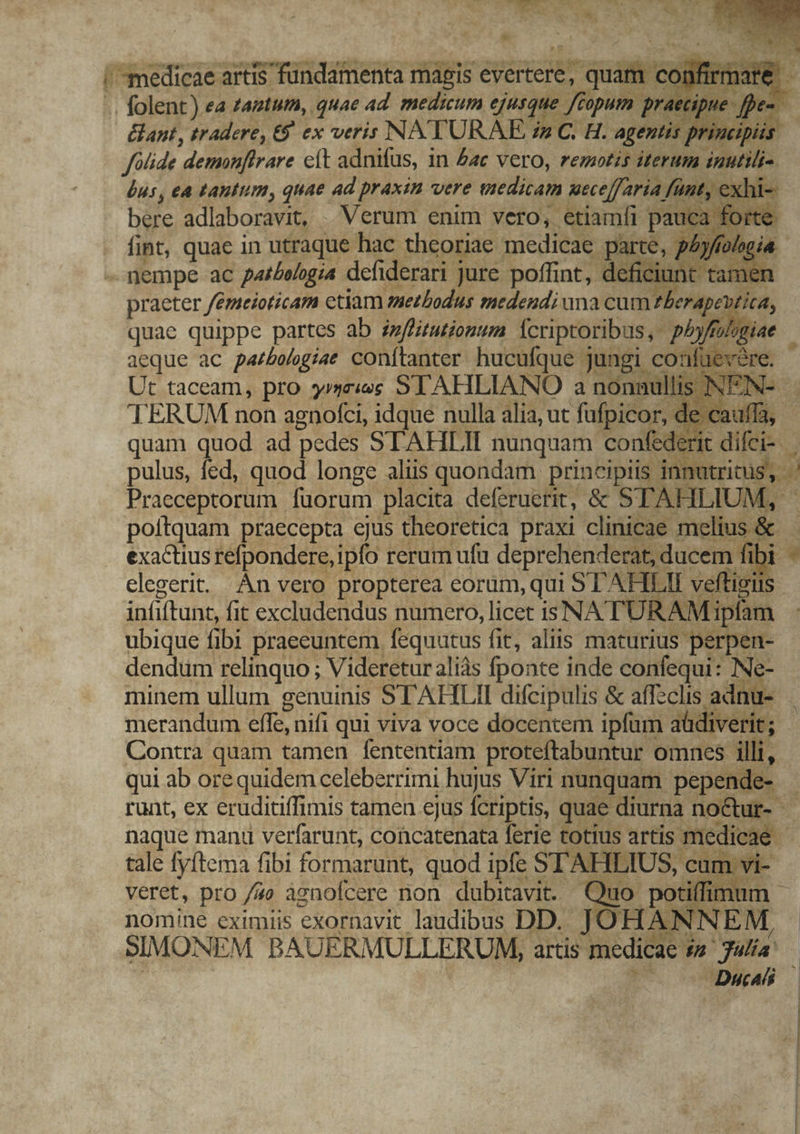 medicae artis fundamenta magis evertere, quam confirmare
ſolent) ea tantum, quae ad medicum ejusque ſcopum praecipue ſpe-
ctant, tradere, & ex veris NATURAE in C. H. agentis principiis
ſolide demonſtrare eſt adniſus, in hac vero, remotis iterum inutili-
bus, ea tantum, quae ad praxin vere medicam neceſſaria ſunt, exhi-
bere adlaboravit. Verum enim vero, etiamſi pauca forte
ſint, quae in utraque hac theoriae medicae parte, phyſiologia
nempe ac pathologia deſiderari jure poſſint, deficiunt tamen
praeter ſemeioticam etiam methodus medendi una cum therapevtica,
quae quippe partes ab inſtitutionum ſcriptoribus, phyſiologiae
aeque ac pathologiae conſtanter hucuſque jungi conſuevêre.
Ut taceam, pro γνησίως STAHLIANO a nonnullis NEN-
TERUM non agnoſci, idque nulla alia, ut ſuſpicor, de cauſſa,
quam quod ad pedes STAHLII nunquam conſederit diſci-
pulus, ſed, quod longe aliis quondam principiis innutritus,
Praeceptorum ſuorum placita deſeruerit, & STAHLIUM,
poſtquam praecepta ejus theoretica praxi clinicae melius &
exactius reſpondere, ipſo rerum uſu deprehenderat, ducem ſibi
elegerit. An vero propterea eorum, qui STAHLII veſtigiis
inſiſtunt, ſit excludendus numero, licet is NATURAM ipſam
ubique ſibi praeeuntem ſequutus ſit, aliis maturius perpen-
dendum relinquo; Videretur aliàs ſponte inde conſequi: Ne-
minem ullum genuinis STAHLII diſcipulis & aſſeclis adnu-
merandum eſſe, niſi qui viva voce docentem ipſum audiverit;
Contra quam tamen ſententiam proteſtabuntur omnes illi,
qui ab ore quidem celeberrimi hujus Viri nunquam pepende-
runt, ex eruditiſſimis tamen ejus ſcriptis, quae diurna noctur-
naque manu verſarunt, concatenata ſerie totius artis medicae
tale ſyſtema ſibi formarunt, quod ipſe STAHLIUS, cum vi-
veret, pro ſuo agnoſcere non dubitavit. Quo potiſſimum
nomine eximiis exornavit laudibus DD. JOHANNEM
SIMONEM BAUERMULLERUM, artis medicae in Julia
Ducali